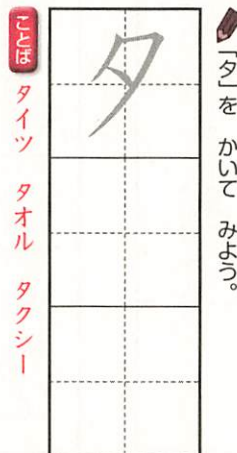 「タ」を かいて みよう。
タ
ことば タイツ タオル タクシー